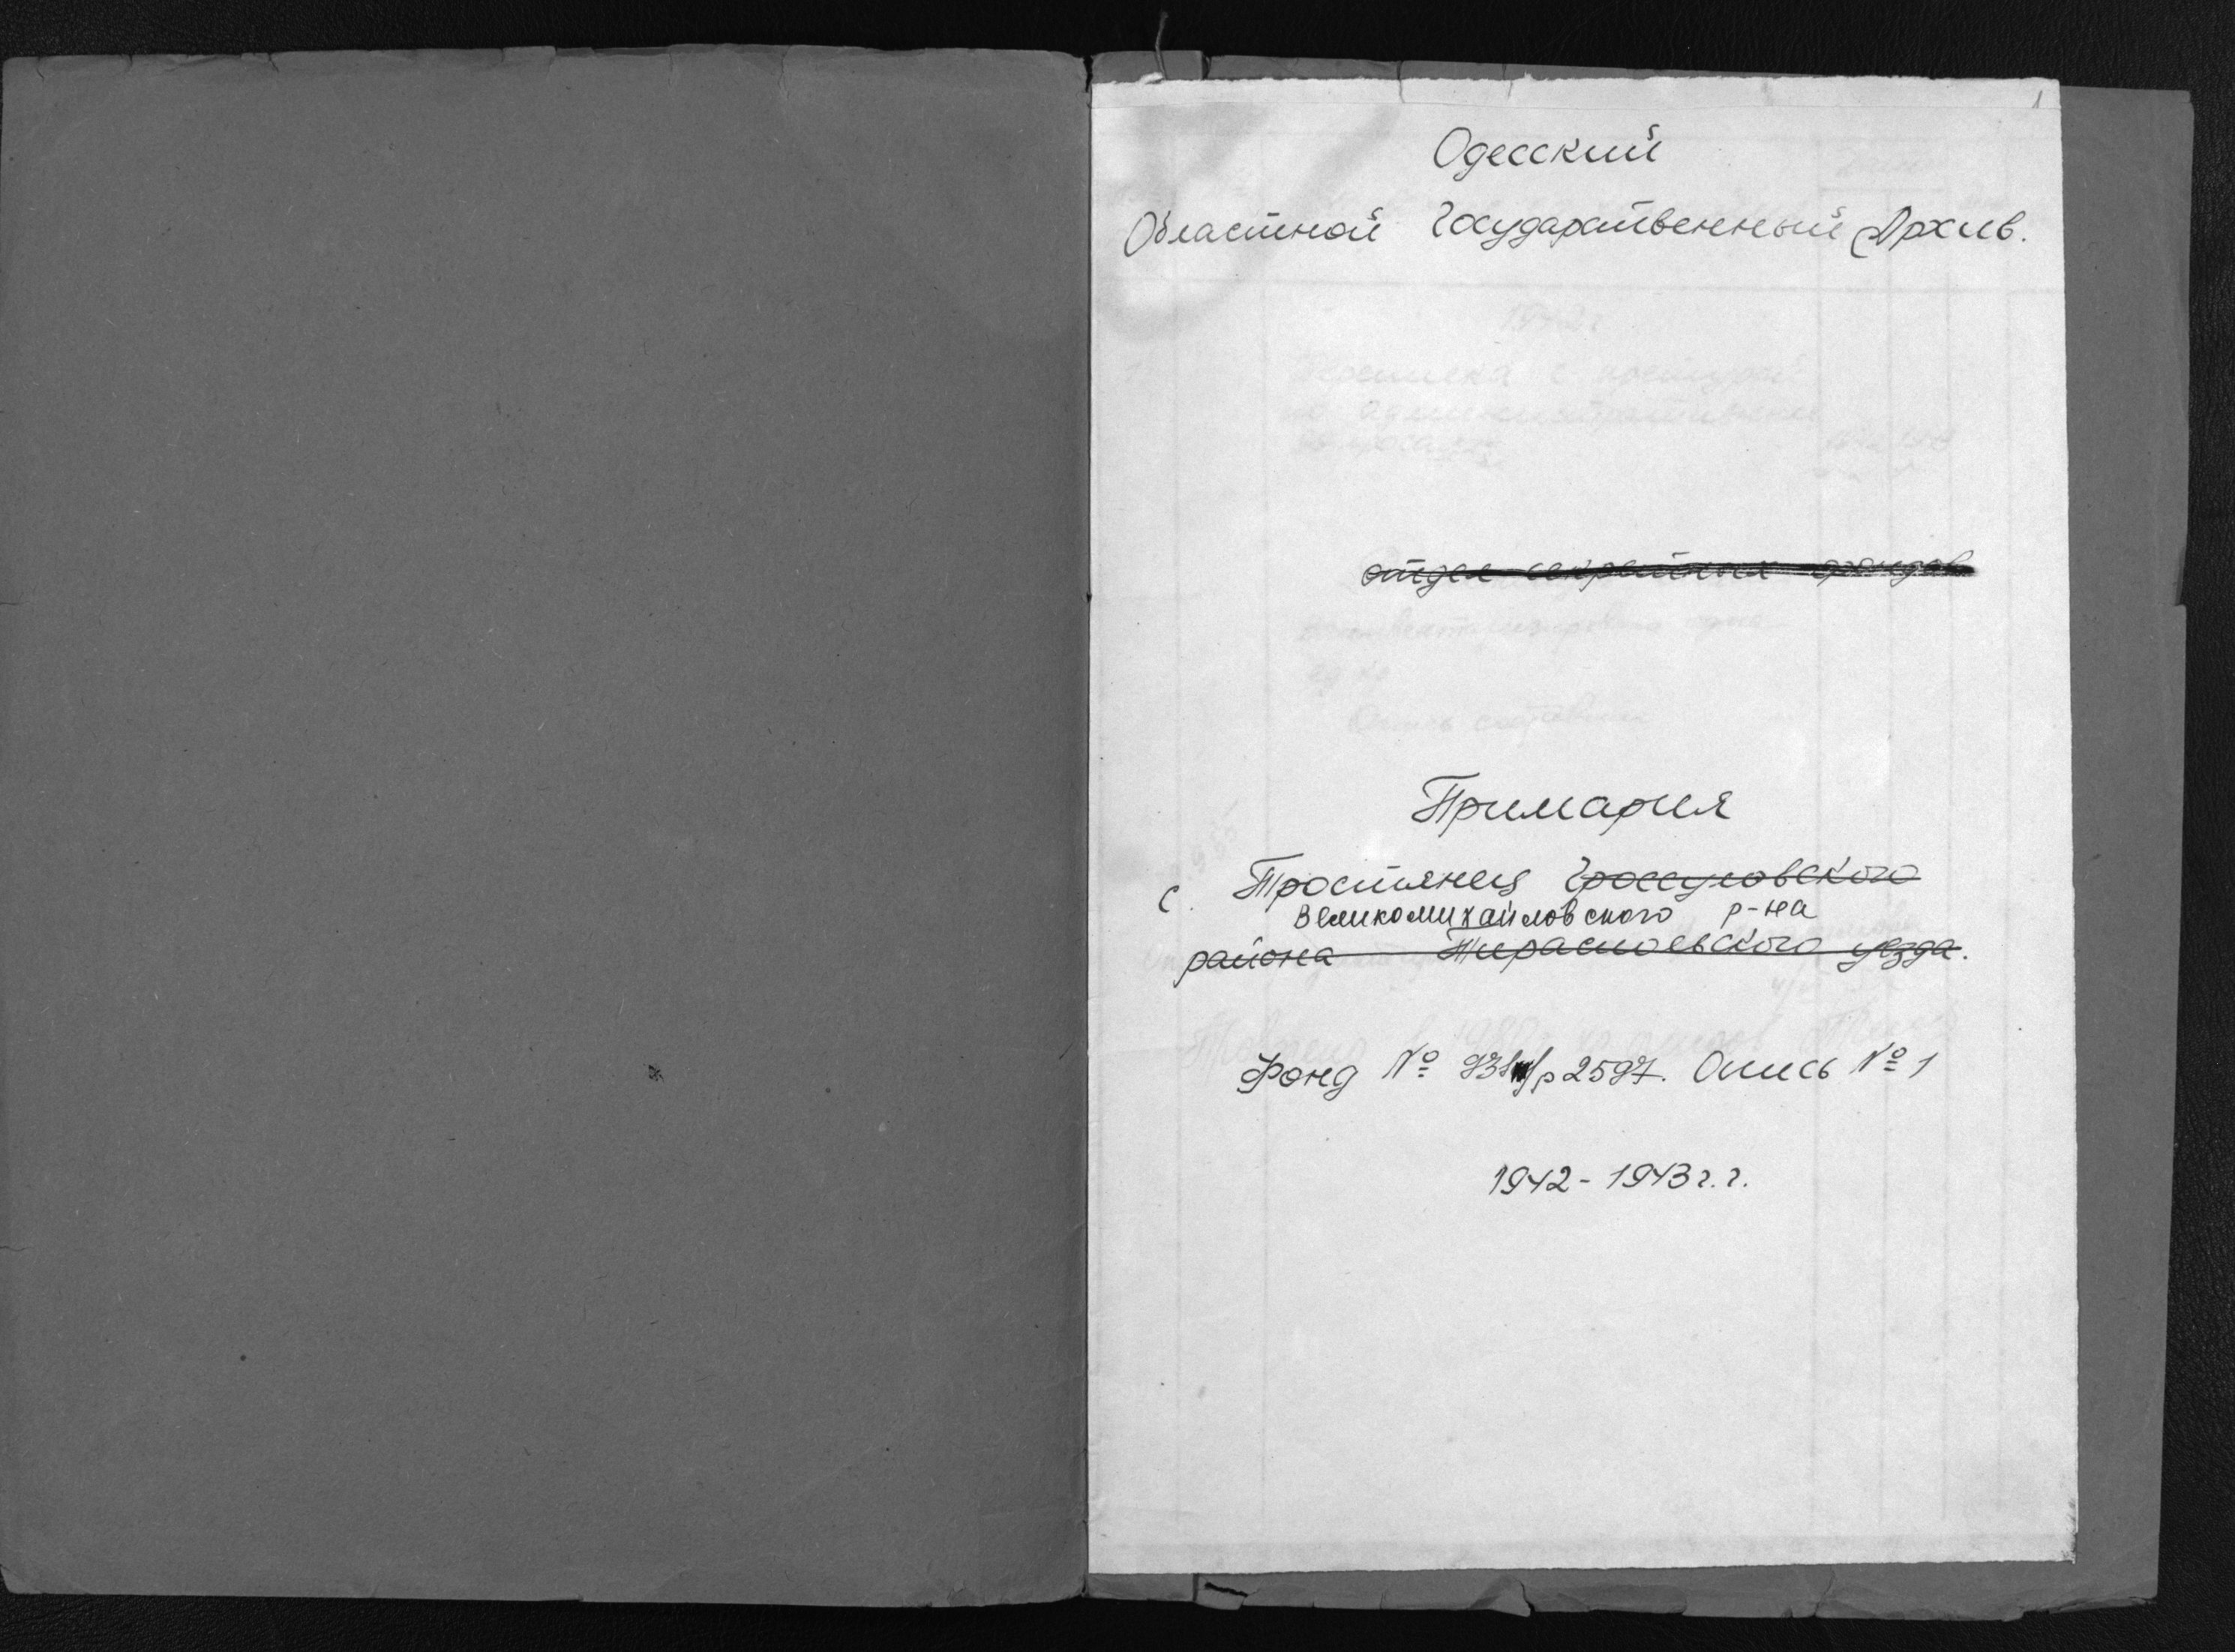 1
Одесский
Областной Государственный Архив.
отдел секретных фондов
Примария
с. Тростянец Гроссуловского
Великомихайловского р-на
района Тираспольского уезда.
Фонд № р 2597. Опись № 1
1942 - 1943 г. г.